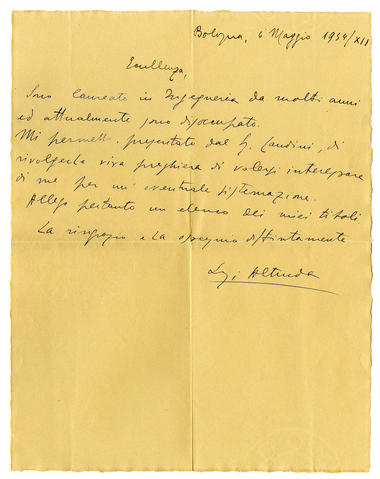 Bologna, 6 Maggio 1934/XII
Eccellenza,
Sono laureato in Ingegneria da molti anni
ed attualmente sono disoccupato.
Mi permetto, presentato dal S. Landini, di
rivolgerLe viva preghiera di volersi interessare
di me per un' eventuale sistemazione.
Allego pertanto un elenco dei miei titoli
La ringrazio e La ossequio distintamente